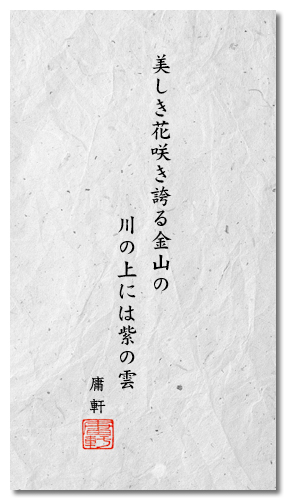 美しき花咲き誇る金山の
川の上には紫の雲
庸軒